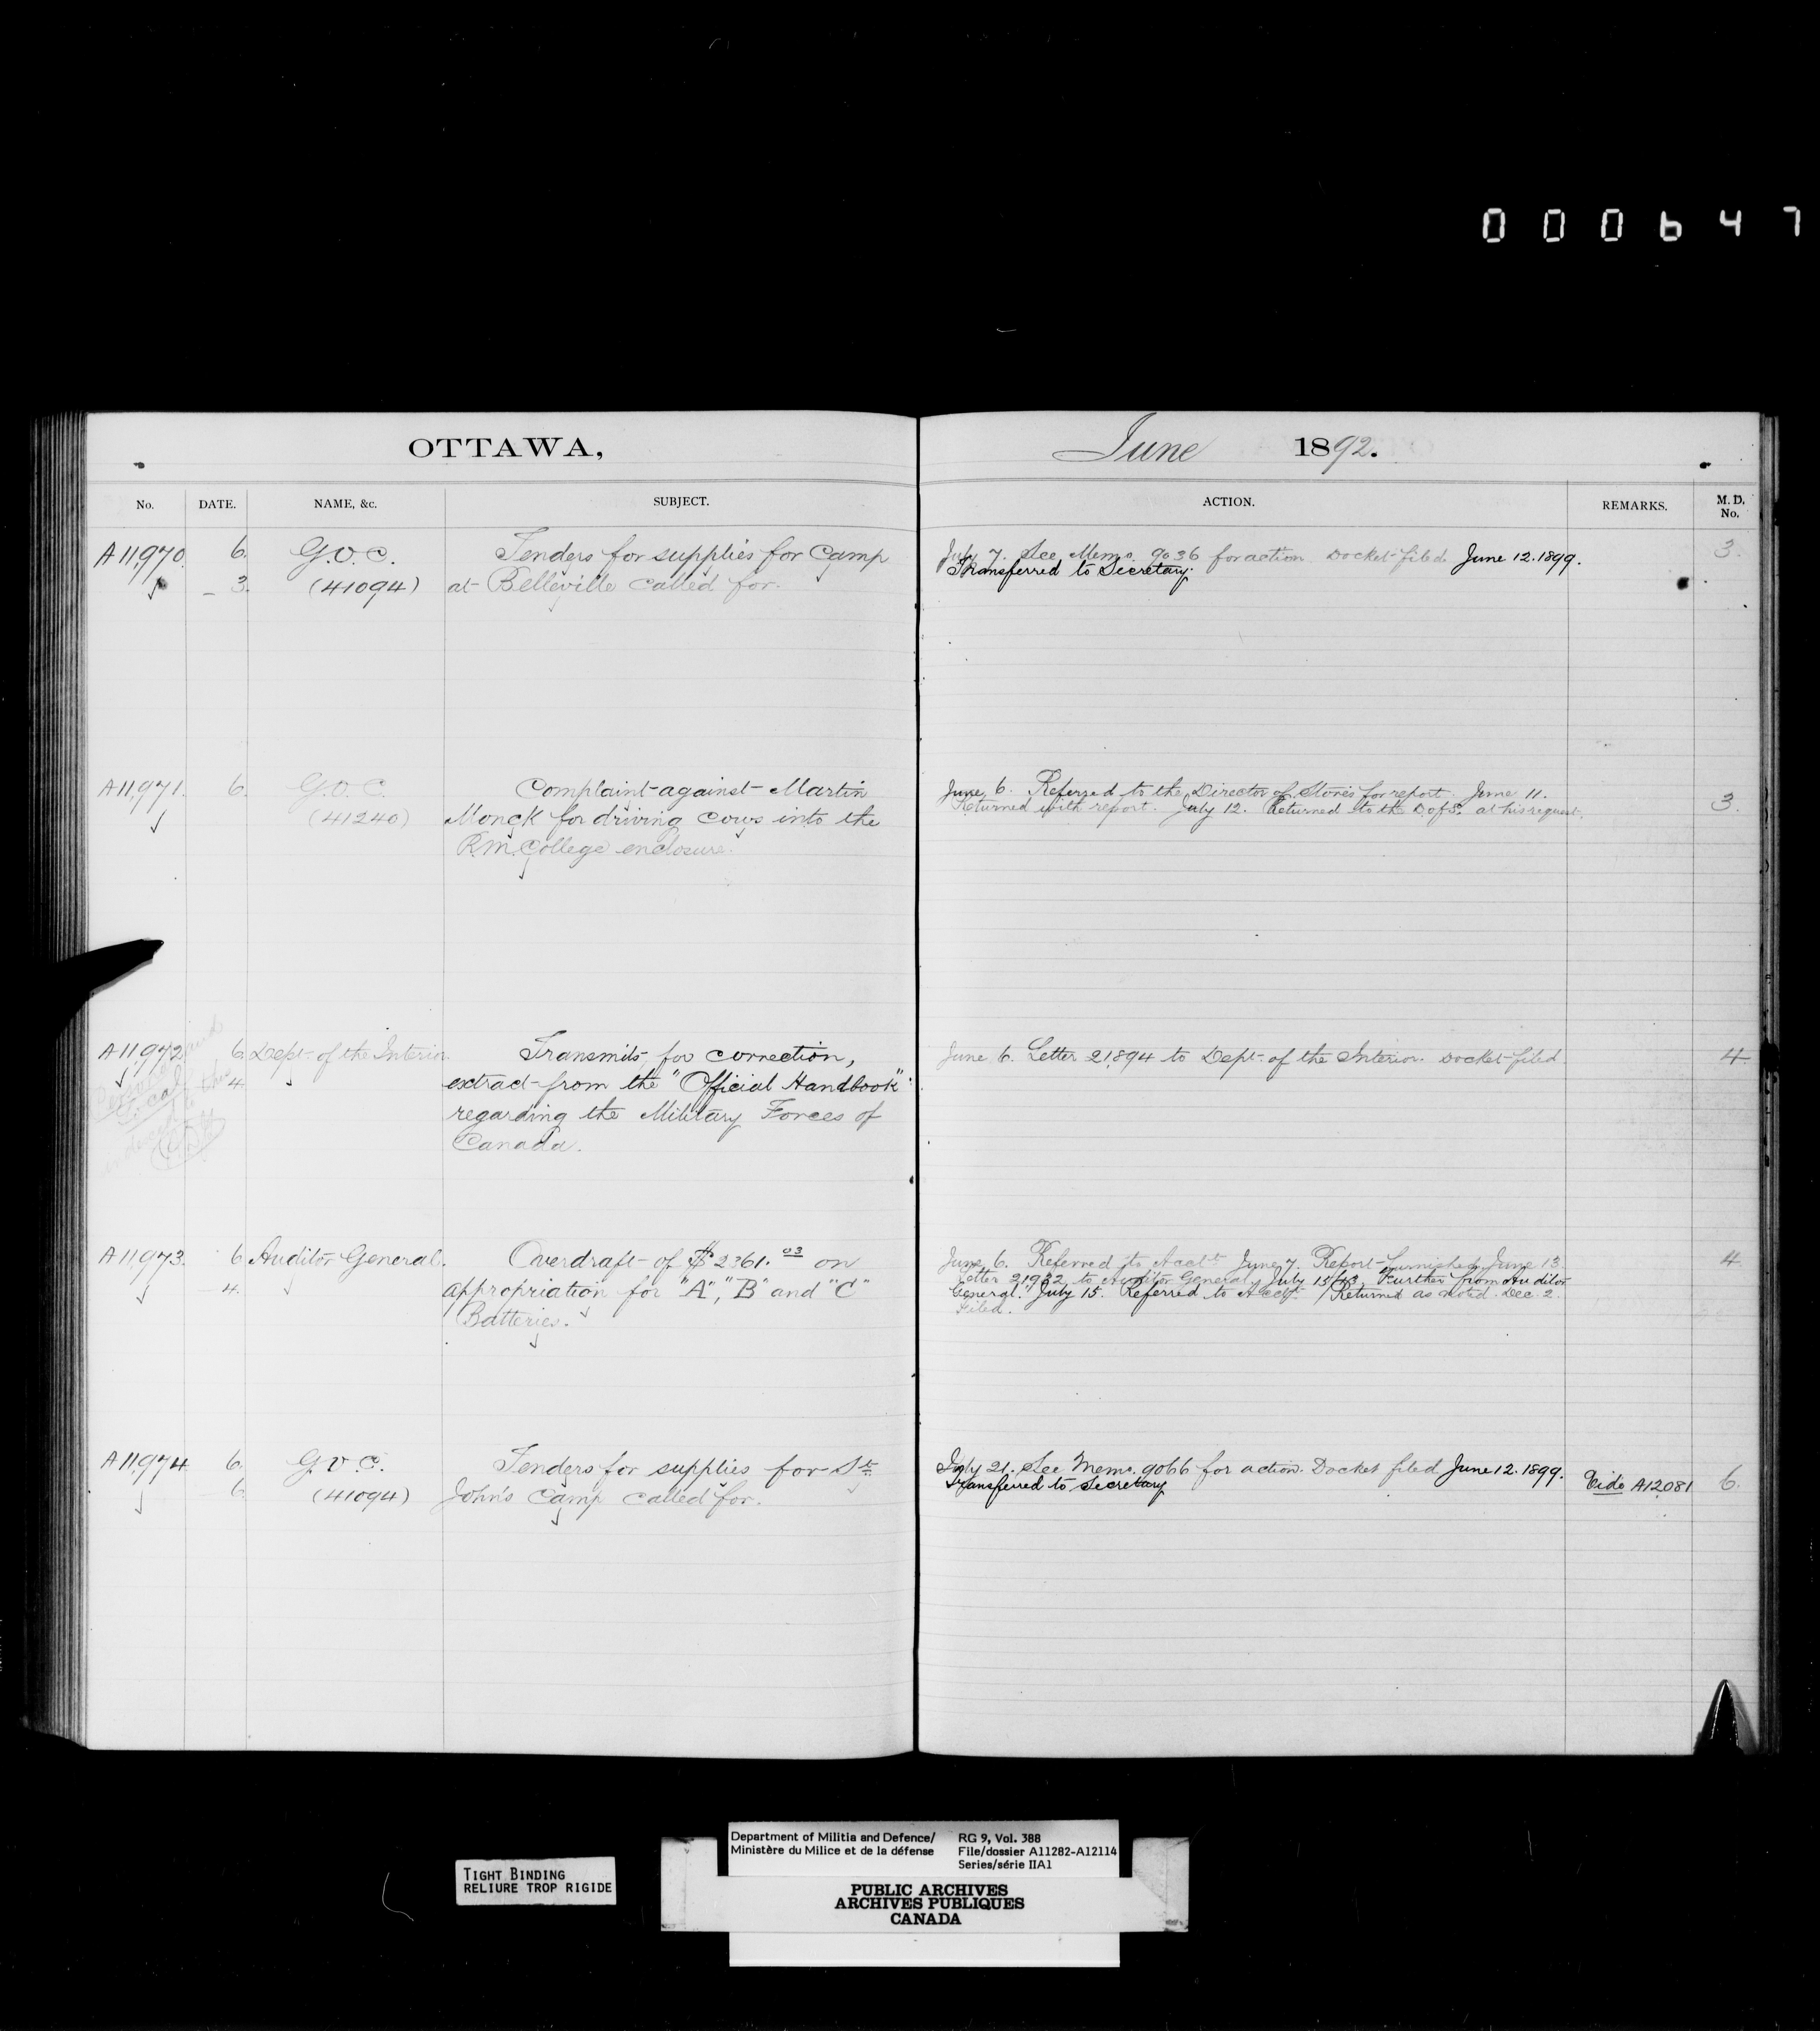 000647
OTTAWA, June 1892.
No. DATE. NAME, &c. SUBJECT. ACTION. REMARKS. M. D. No.
A11970. 6. G.O.C. Tenders for supplies for Camp
3. (41094) at Belleville called for.
July 7. See Memo. 9036 for action. Docket filed June 12.1899.
Transferred to Secretary.
3.
A11971. 6. G.O.C. Complaint against Martin
(41240) Monck for driving cows into the
R.M. College enclosure.
June 6. Referred to the Director of Stores for report. June 11.
Returned with report. July 12. Returned to the D of S. at his request.
3.
A11972 6. Dept. of the Interior Transmits for correction,
4. extract from the "Official Handbook"
regarding the Military Forces of
Canada.
June 6. Letter 21894 to Dept. of the Interior. Docket filed
4.
A11973. 6. Auditor General. Overdraft of $2361.03 on
4. appropriation for "A", "B" and "C"
Batteries.
June 6. Referred to Acct. June 7. Report furnished June 13.
Letter 21932 to Auditor General. July Further from Auditor
General. July 15. Referred to Acct. Returned as noted. Dec. 2.
Filed.
4.
A11974. 6. G.O.C. Tenders for supplies for St.
6. (41094) John's Camp called for.
July 21. See Memo. 9066 for action. Docket filed June 12.1899.
Transferred to Secretary
Vide A12081 6.
TIGHT BINDING
RELIURE TROP RIGIDE
Department of Militia and Defence/
Ministère du Milice et de la défense
RG 9, Vol. 388
File/dossier A11282-A12114
Series/série IIA1
PUBLIC ARCHIVES
ARCHIVES PUBLIQUES
CANADA